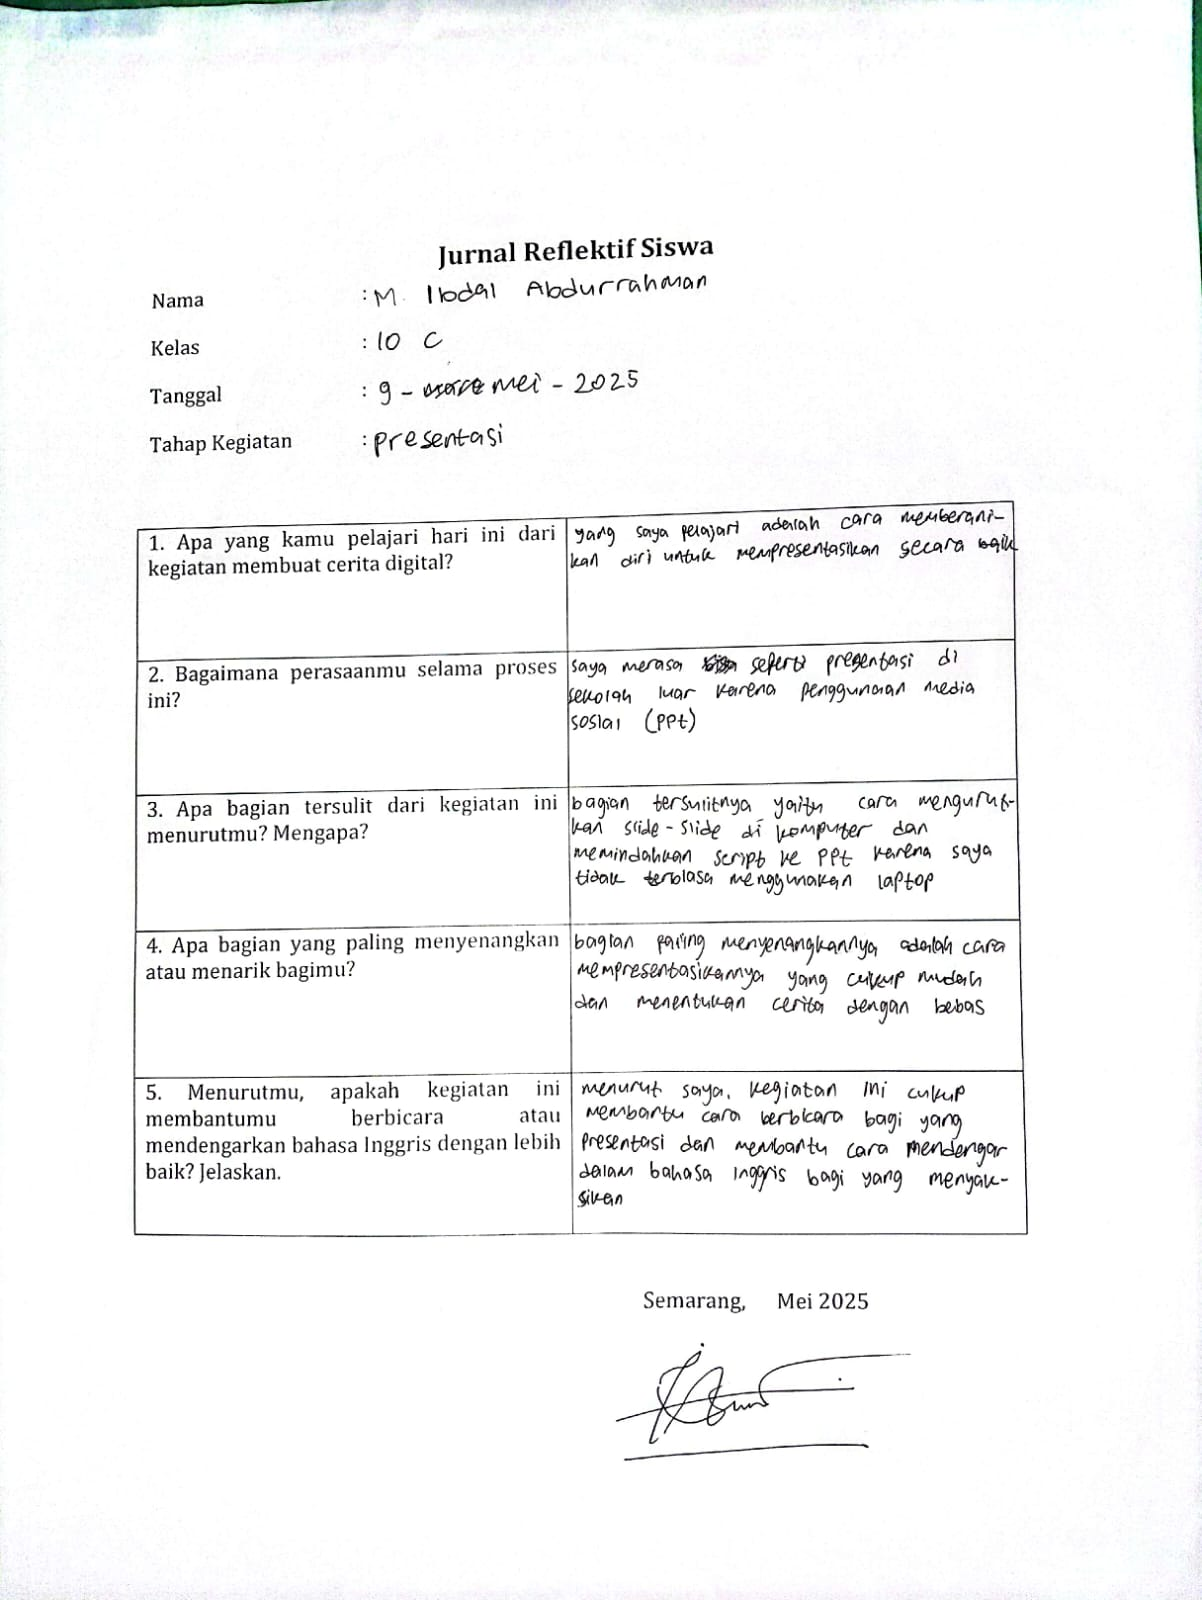 Jurnal Reflektif Siswa
Nama : M. Ibdal Abdurrahman
Kelas : 10 C
Tanggal : 9 - mei - 2025
Tahap Kegiatan : presentasi
1. Apa yang kamu pelajari hari ini dari
kegiatan membuat cerita digital?
yang saya pelajari adalah cara memberani-
kan diri untuk mempresentasikan secara baik
2. Bagaimana perasaanmu selama proses
ini?
saya merasa seperti presentasi di
sekolah luar karena penggunaan media
sosial (PPt)
3. Apa bagian tersulit dari kegiatan ini
menurutmu? Mengapa?
bagian tersulitnya yaitu cara mengurut-
kan slide-slide di komputer dan
memindahkan script ke PPt karena saya
tidak terbiasa menggunakan laptop
4. Apa bagian yang paling menyenangkan
atau menarik bagimu?
bagian paling menyenangkannya adalah cara
mempresentasikannya yang cukup mudah
dan menentukan cerita dengan bebas
5. Menurutmu, apakah kegiatan ini
membantumu berbicara atau
mendengarkan bahasa Inggris dengan lebih
baik? Jelaskan.
menurut saya, kegiatan ini cukup
membantu cara berbicara bagi yang
presentasi dan membantu cara mendengar
dalam bahasa inggris bagi yang menyak-
sikan
Semarang, Mei 2025